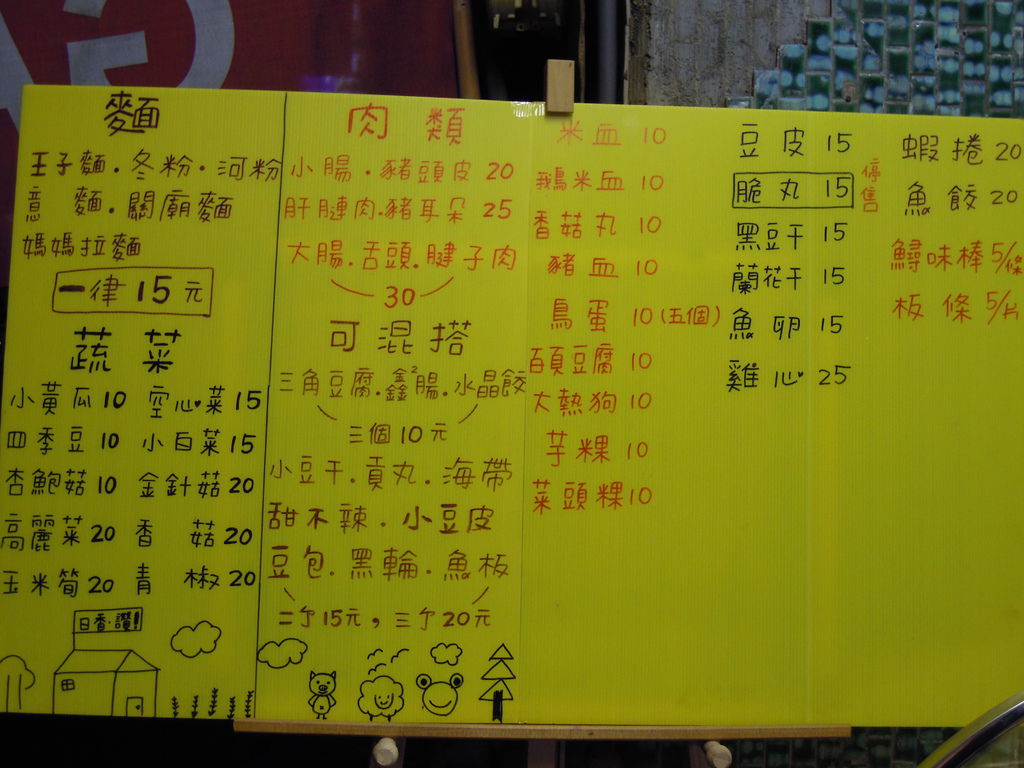 麵
王子麵.冬粉.河粉
意 麵.關廟麵
媽媽拉麵
一律15元
蔬 菜
小黃瓜10 空心菜15
四季豆10 小白菜15
杏鮑菇10 金針菇20
高麗菜20 香 菇20
玉米筍20 青 椒20
日香.讚!
肉 類
小腸.豬頭皮 20
肝膁肉.豬耳朵 25
大腸.舌頭.腱子肉
30
可混搭
三角豆腐.鑫鑫腸.水晶餃
三個10元
小豆干.貢丸.海帶
甜不辣.小豆皮
豆包.黑輪.魚板
二個15元,三個20元
米血 10
鵝米血 10
香菇丸 10
豬血 10
鳥蛋 10(五個)
百頁豆腐 10
大熱狗 10
芋粿 10
菜頭粿10
豆皮 15
脆丸 15
停售
黑豆干 15
蘭花干 15
魚卵 15
雞心 25
蝦捲 20
魚餃 20
鱘味棒 5/條
板條 5/片